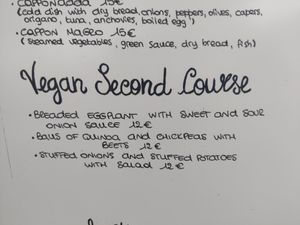 • CAPPONADDA 15€
(cold dish with dry bread, onions, peppers, olives, capers,
origano, tuna, anchovies, boiled egg)
• CAPPON MAGRO 15€
(steamed vegetables, green sauce, dry bread, fish)
Vegan Second Course
• BREADED EGGPLANT WITH SWEET AND SOUR
ONION SAUCE 12€
• BALLS OF QUINOA AND CHICKPEAS WITH
BEETS 12€
• STUFFED ONIONS AND STUFFED POTATOES
WITH SALAD 12€